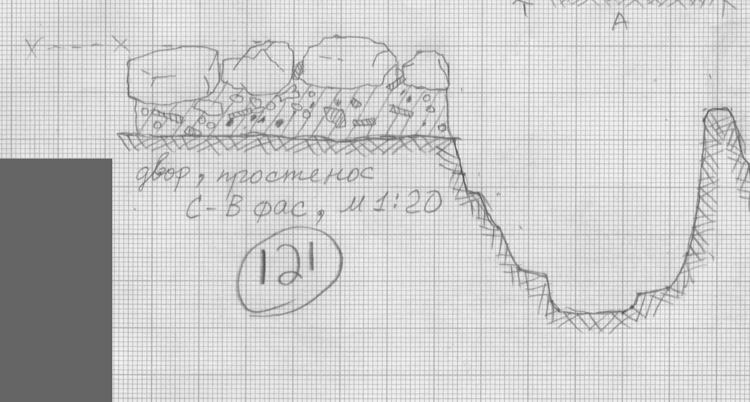 A
двор, простенос
С-В фас, М 1:20
121